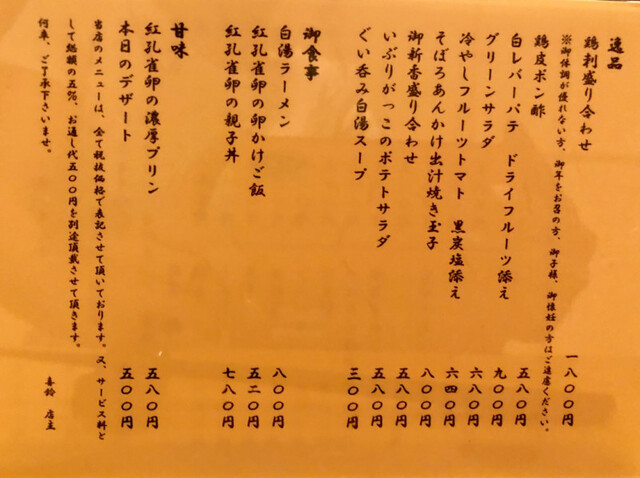 逸品
鶏刺盛り合わせ 一八〇〇円
※御体調が優れない方、御年をお召の方、御子様、御懐妊の方はご遠慮ください。
鶏皮ポン酢 五八〇円
白レバーパテ ドライフルーツ添え 九〇〇円
グリーンサラダ 六八〇円
冷やしフルーツトマト 黒炭塩添え 六四〇円
そぼろあんかけ出汁焼き玉子 八〇〇円
御新香盛り合わせ 五八〇円
いぶりがっこのポテトサラダ 五八〇円
ぐい呑み白湯スープ 三〇〇円
御食事
白湯ラーメン 八〇〇円
紅孔雀卵の卵かけご飯 五二〇円
紅孔雀卵の親子丼 七八〇円
甘味
紅孔雀卵の濃厚プリン 五八〇円
本日のデザート 五〇〇円
当店のメニューは、全て税抜価格で表記させて頂いております。又、サービス料と
して総額の五%、お通し代五〇〇円を別途頂戴させて頂きます。
何卒、ご了承下さいませ。
喜鈴 店主